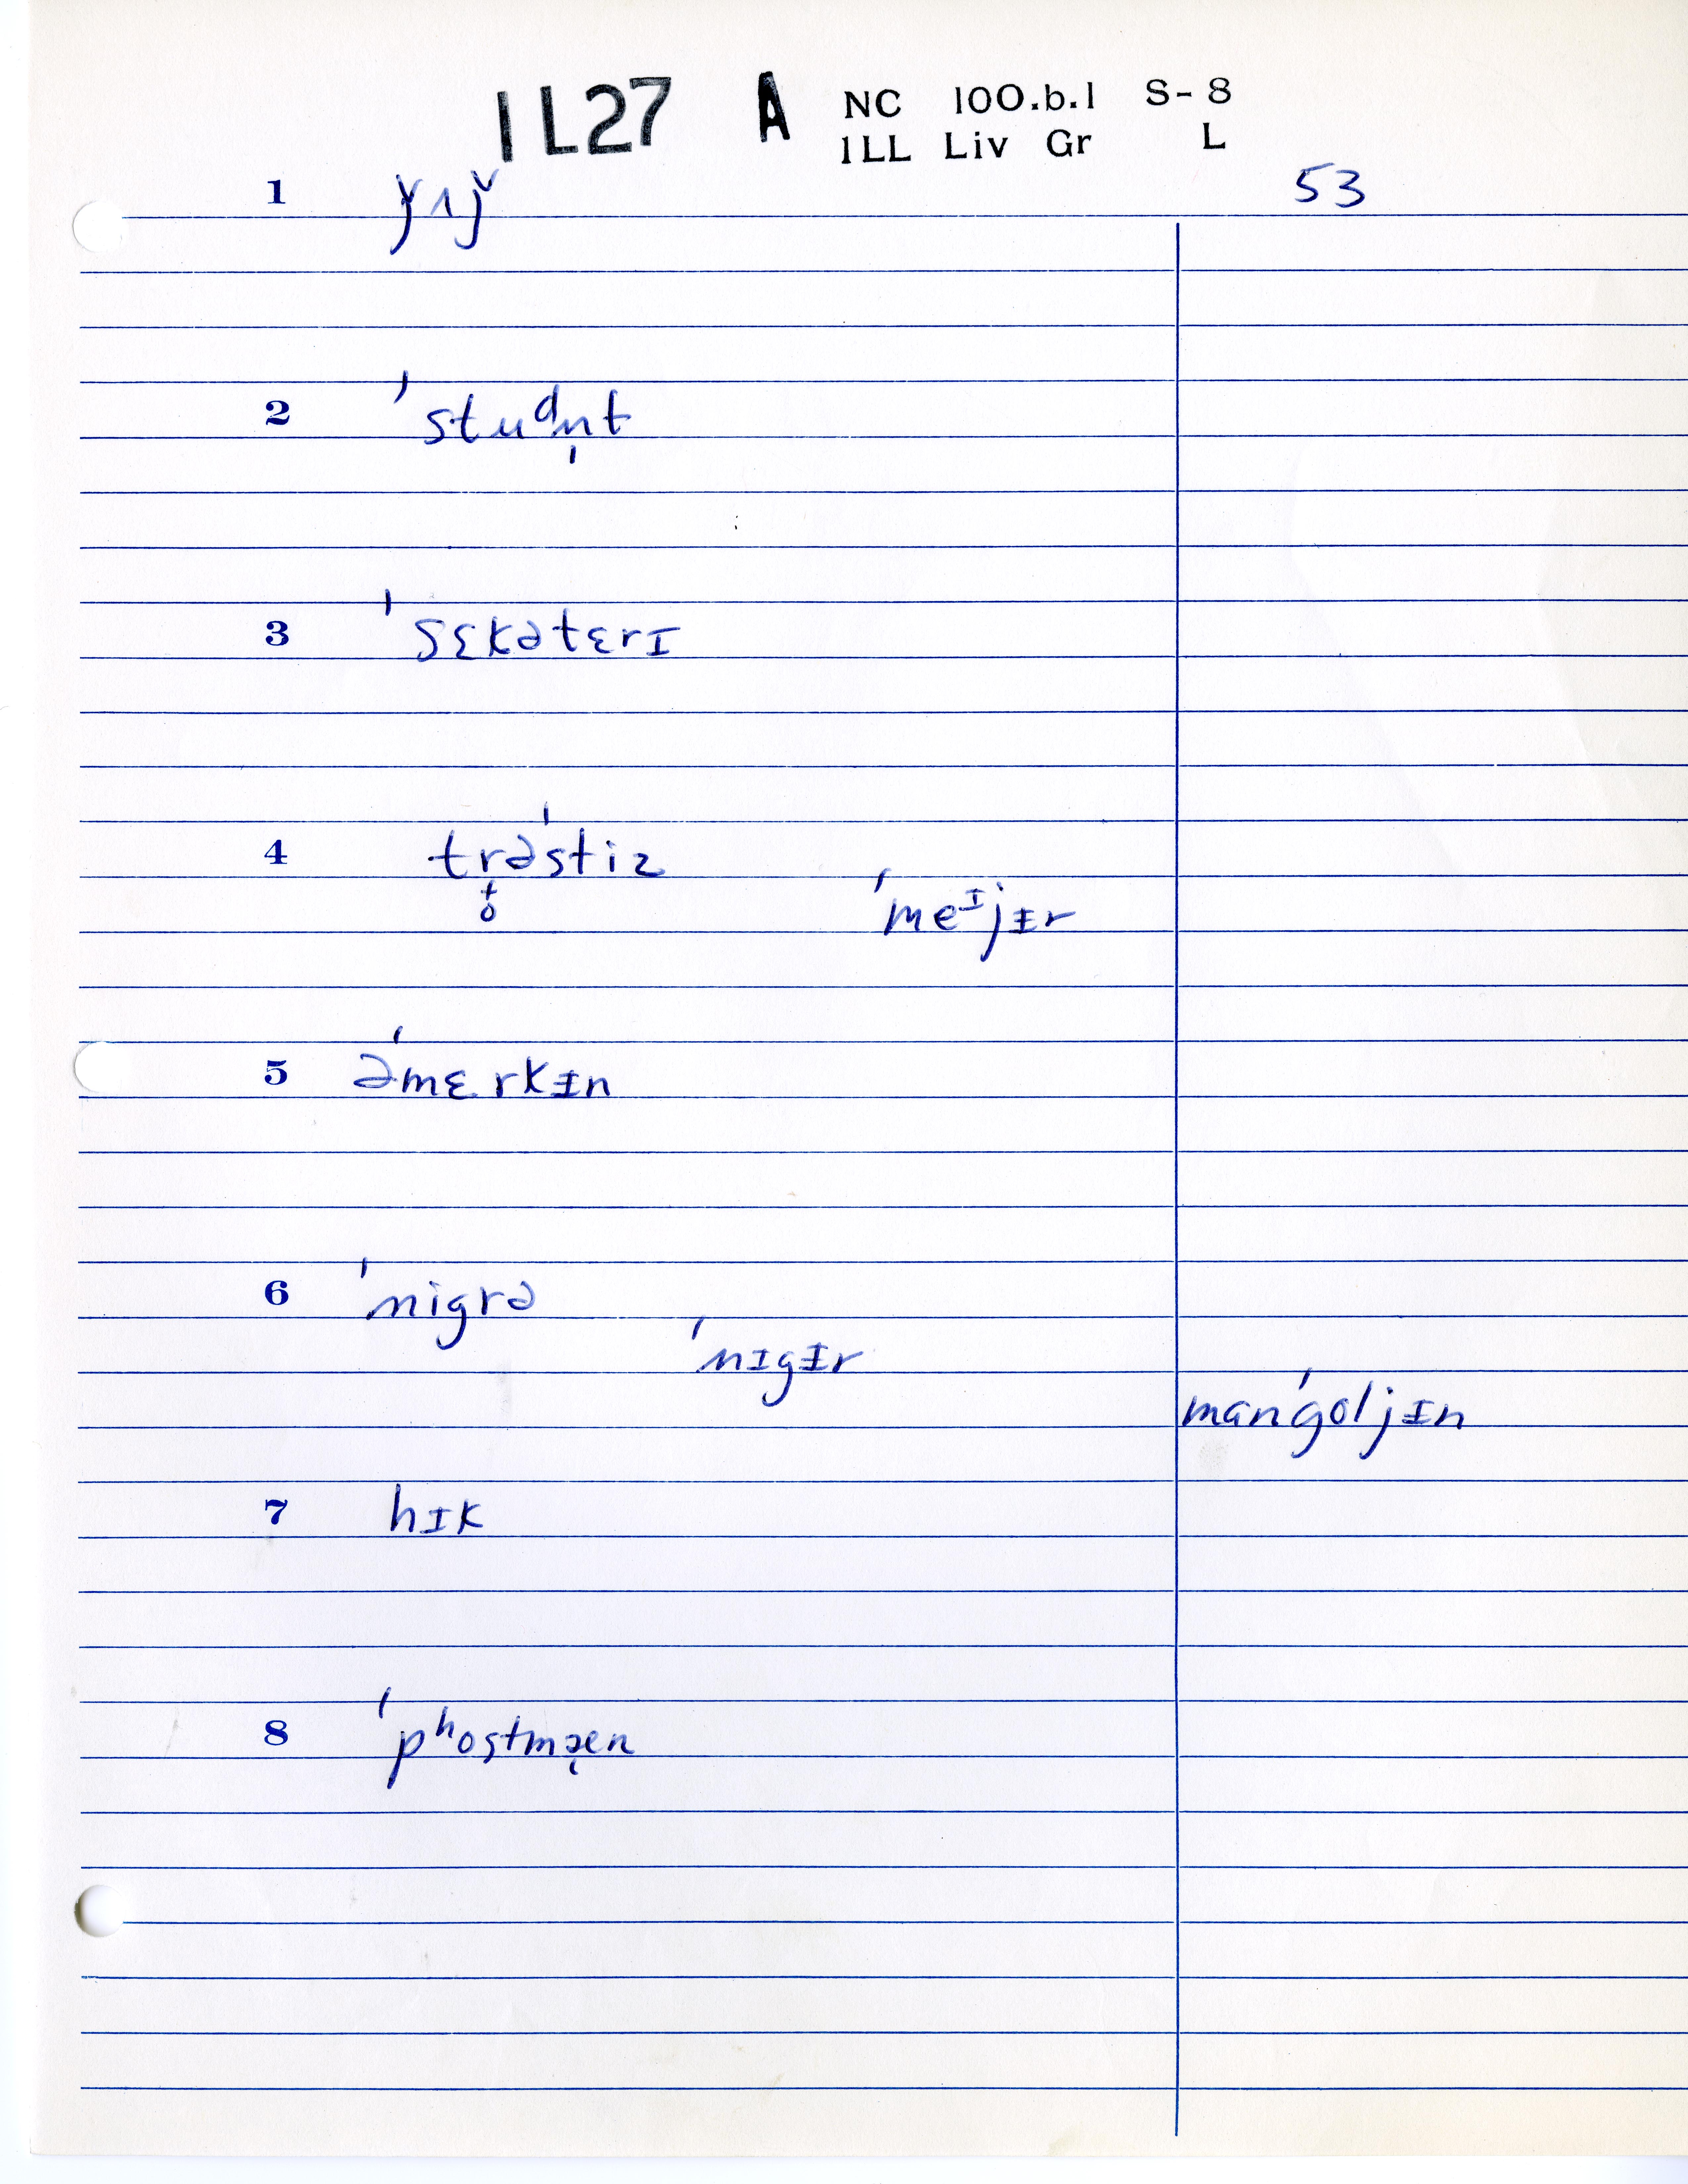 1L27 A NC 100.b.1 S-8
1LL Liv Gr L
1 ǰʌǰ 53
2 ˈstudn̩t
3 ˈsɛkətɛrɪ
4 trəˈstiz
ˈmeᴵjɨr
5 əˈmɛrkɨn
6 ˈnigrə
ˈnɪgɨr
manˈgoljɨn
7 hɪk
8 ˈpʰostmæn